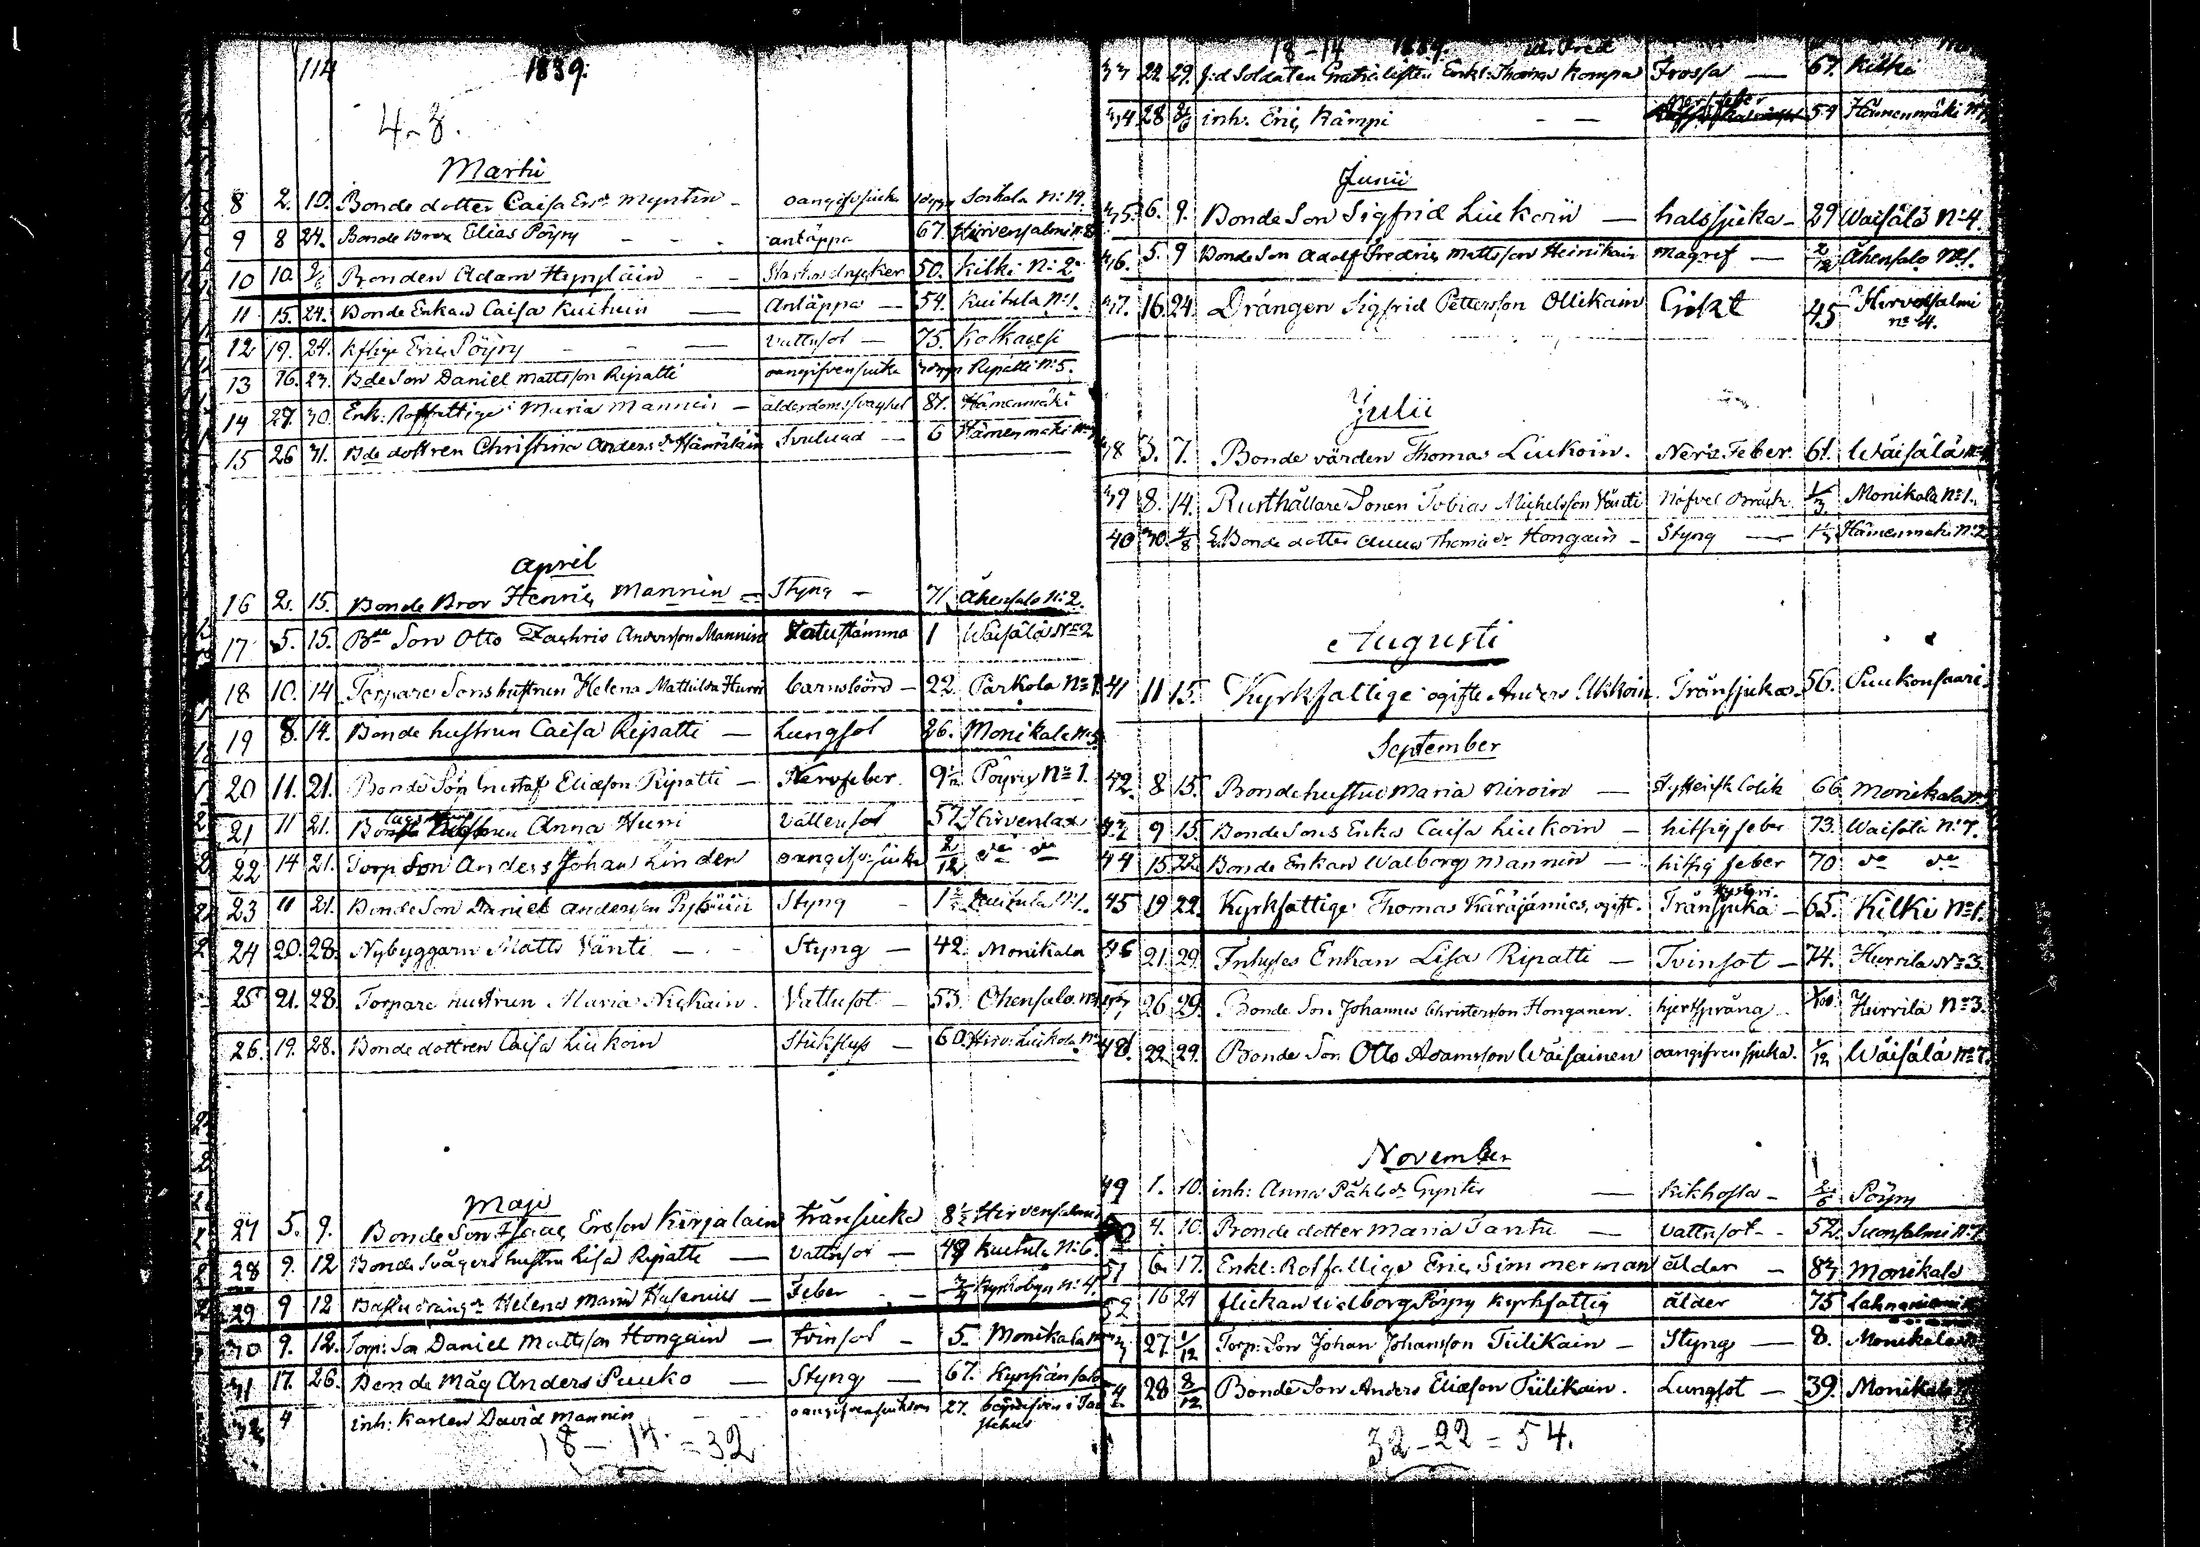 114 1839.
4-8.
Martii
8 2. 10. Bonde dotter Caisa Ersdr Myntin - oangifvsjuka Sorkala No 19.
9 8 24. Bonde Bror Elias Pöyry - - - andtäppa 67. Hirvensalmi No 8
10 10. Bonden Adam Hyyryläin - - 50. Kilki No 2
11 15. 24. Bonde Enkan Caisa Kuituin — Antäppa — 54. Kuitula No 1.
12 19. 24. Kfttige Eric Pöyry - - — Vattusot — 75. Kolkavesi
13 16. 23. Bde Son Daniel Mattsson Ripatti oangifven siuka Ripatti No 5.
14 27. 30. Enk: Rotfattige Maria Mannin — ålderdomssvaghet 81. Hämenmäki
15 26 31. Bde dottren Christina Andersdr Hämäläin Svulnad — 6 Hämenmäki No
April
16 2. 15. Bonde Bror Henric Mannin — Styng — 71 Åhensalo No 2.
17 5. 15. Bde Son Otto Zachris Andersson Mannin 1 Waisälä No 2
18 10. 14 Torpare Sonshustrun Helena Mathilda Hurri barnsbörd — 22. Parkola No 1.
19 8. 14. Bonde hustrun Caisa Ripatti — Lungsot 26. Monikala No 5
20 11. 21. Bonde Son Gustaf Eliasson Ripatti — Nervfeber. 9½ Pöyry No 1.
21 11 21. Anna Hurri Vattensot 57 Hirvenlax
22 14 21. Torp Son Anders Johan Linden oangifv. siuka 2/12 do do
23 11 21. Bonde Son Daniel Andersson Styng - No 1.
24 20. 28. Nybyggarn Matts Vänti — - Styng — 42. Monikala
25 21. 28. Torpare hustrun Maria Nickain. Vattusot — 53. Ohensalo. No
26. 19. 28. Bonde dottren Caisa Liukoin Stickfluss — 60. Hirv: Liukola No
Maji
27 5. 9. Bonde Son Isaac Ersson Kirjalain Trånsiuka 8½ Hirvensalmi
28 9. 12 Bonde Svägers hustru Lisa Ripatti — Vattusot — 49 Kuitula No 6.
29 9 12 Helena Maria Hasenius — Feber - — 3/4 Kyrkobyn No 4.
30 9. 12. Torp: Son Daniel Mattsson Hongain — tvinsot — 5. Monikala No
31 17. 26. Bonde Måg Anders Puuko — Styng — 67.
32 4 inh: Karlen David Mannin oangifven siukdom 27. begrafven i
18 - 14 = 32
18-14 1839.
33 22. 29. f:d Soldaten Gratialisten Enkl: Thomas Kompa Frossa — 67. Kilki
34 28 2/6 inh. Eric Kämpi - — 59 Hämenmäki No
Junii
35. 6. 9. Bonde Son Sigfrid Liukoin — halssjuka - 29 Waisälä No 4.
36. 5. 9 Bonde Son Adolf Fredric Mattsson Heinikain Magref — 2/12 Åhensalo No 1.
37. 16. 24. Drängen Sigfrid Pettersson Ollikain 45 Hirvensalmi
No 4.
Julii
38 3. 7. Bonde värden Thomas Liukoin. Nerv. Feber. 61. Wäisälä No
39 8. 14. Rusthållare Sonen Tobias Michelsson Vänti Nafvel Bråck. 1/3 Monikala No 1.
40 30. 4/8 Bonde dotter Anna Thomædr Hongain — Styng — Hämenmäki No 2
Augusti
41 11 15. Kyrkfattige ogifte Anders Ukkoin. Trånsjuka - 56. Puukonsaari.
September
42. 8 15. Bondehustru Maria Niroin — Hysterisk Colik 66. Monikala No
43. 9 15. Bonde Sons Enka Caisa Liukoin — hitsig feber 73. Waisälä No 7.
44 15. 22. Bonde Enkan Walborg Mannin — hitsig feber 70 do do
45 19 22. Kyrkfattige Thomas Käräjämies, ogift. Trånsjuka — 65. Kilki No 1.
46 21. 29. Inhyses Enkan Lisa Ripatti — Tvinsot — 74. Hurrila No 3.
47 26 29. Bonde Son Johannes Christersson Honganen. hjertsprång. Hurrila No 3.
48. 22. 29. Bonde Son Otto Adamsson Wäisainen oangifven sjuka. 1/12 Wäisälä No 7.
November
49 1. 10. inh: Anna Påhlsdr Gynter — Kikhosta - 2/6 Pöyry
50 4. 10. Bonde dotter Maria Tantu — Vattusot - - 52. Suonsalmi No 7
51 6. 17. Enkl: Rotfattige Eric Simmerman ålder — 83 Monikala
52 16 24 flickan Walborg Pöyry kyrkfattig ålder 75
53 27. 1/12 Torp: Son Johan Johansson Tiilikain — Styng — 8. Monikala No
54 28 8/12 Bonde Son Anders Eliasson Tiilikain. Lungsot — 39. Monikala No
32-22 = 54.